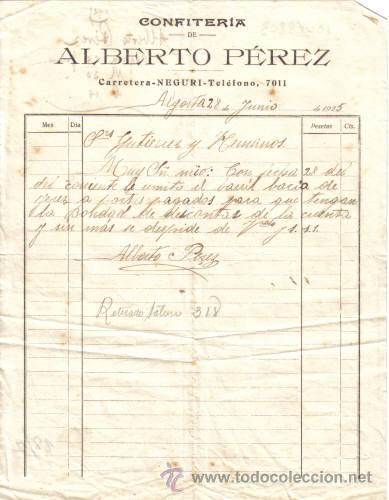 CONFITERÍA
DE
ALBERTO PÉREZ
Carretera-NEGURI-Teléfono, 7011
Algorta 28 de Junio 1925
Mes Día Pesetas Cts.
Sres Gutierrez y Hermanos.
Muy Sr. mio: Con fecha 28 del
del corriente le remito el barril bacio de
a portes pagados para que tengan
la bondad de descontar de la cuenta
y sin mas se despide de s. s. s.
Alberto Perez
Retirado 318
todocoleccion
www.todocoleccion.net